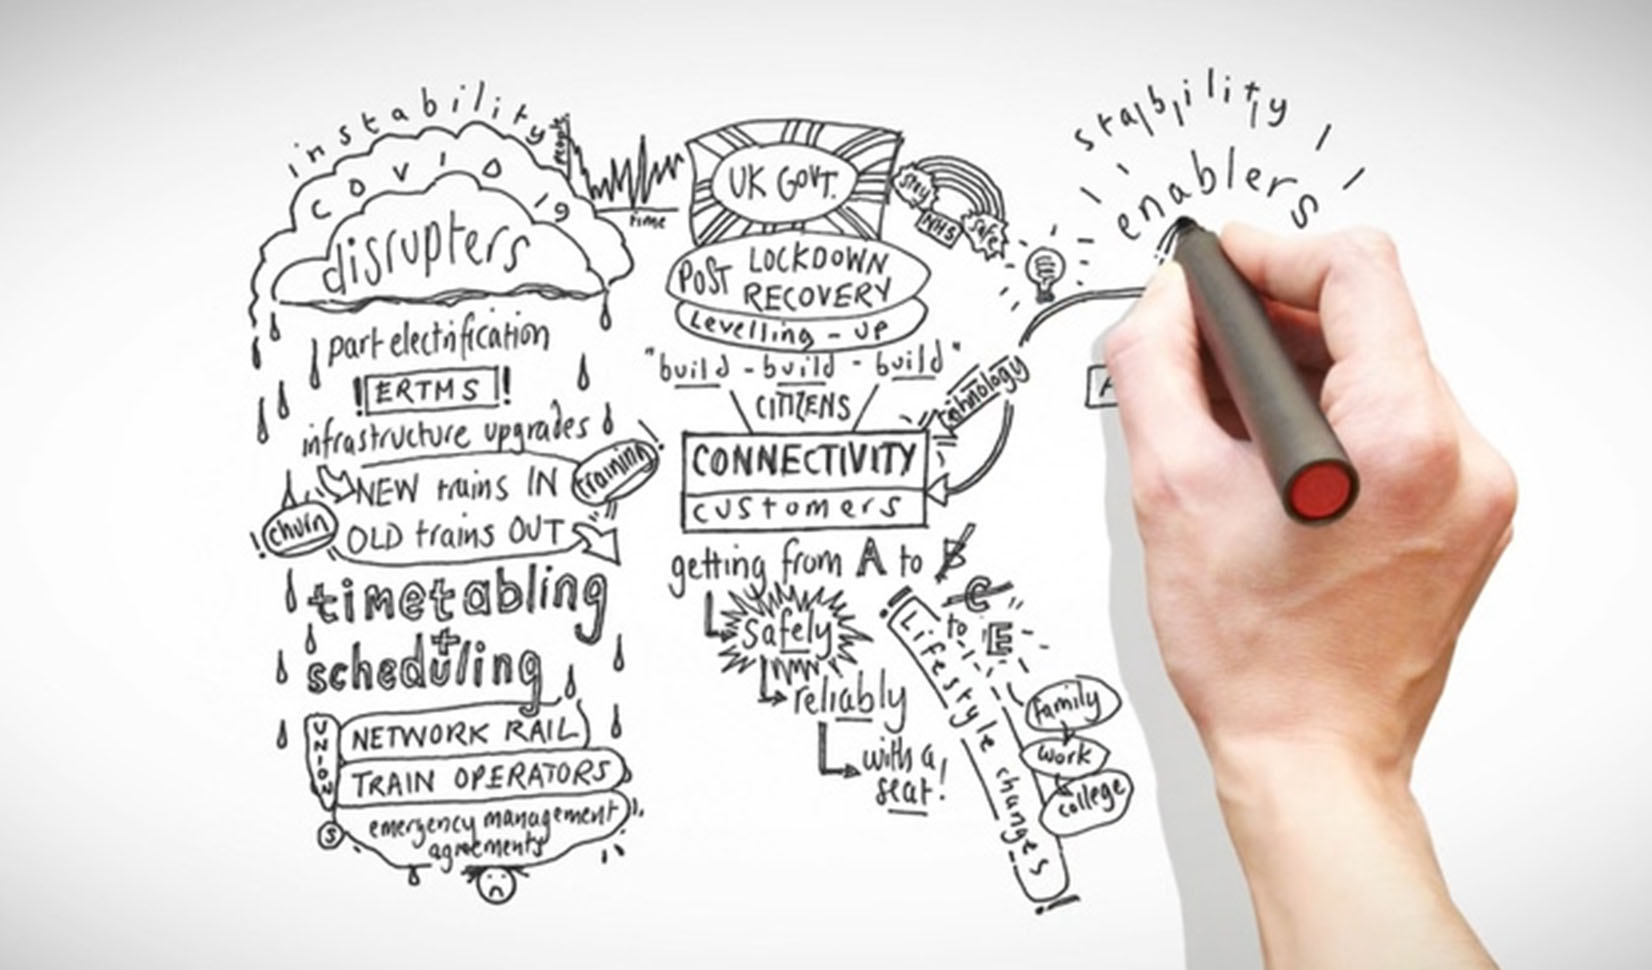 instability
COVID 19
disrupters
part electrification
! ERTMS !
infrastructure upgrades
NEW trains IN
training!
!churn
OLD trains OUT
timetabling
+
scheduling
UNIONS
NETWORK RAIL
TRAIN OPERATORS
emergency management
agreements
people
time
UK GOVT.
stay
NHS
safe
POST LOCKDOWN
RECOVERY
Levelling-up
"build - build - build"
CITIZENS
CONNECTIVITY
customers
technology
getting from A to B
C
to E
safely
reliably
with a
seat!
Lifestyle changes
family
work
college
stability
enablers